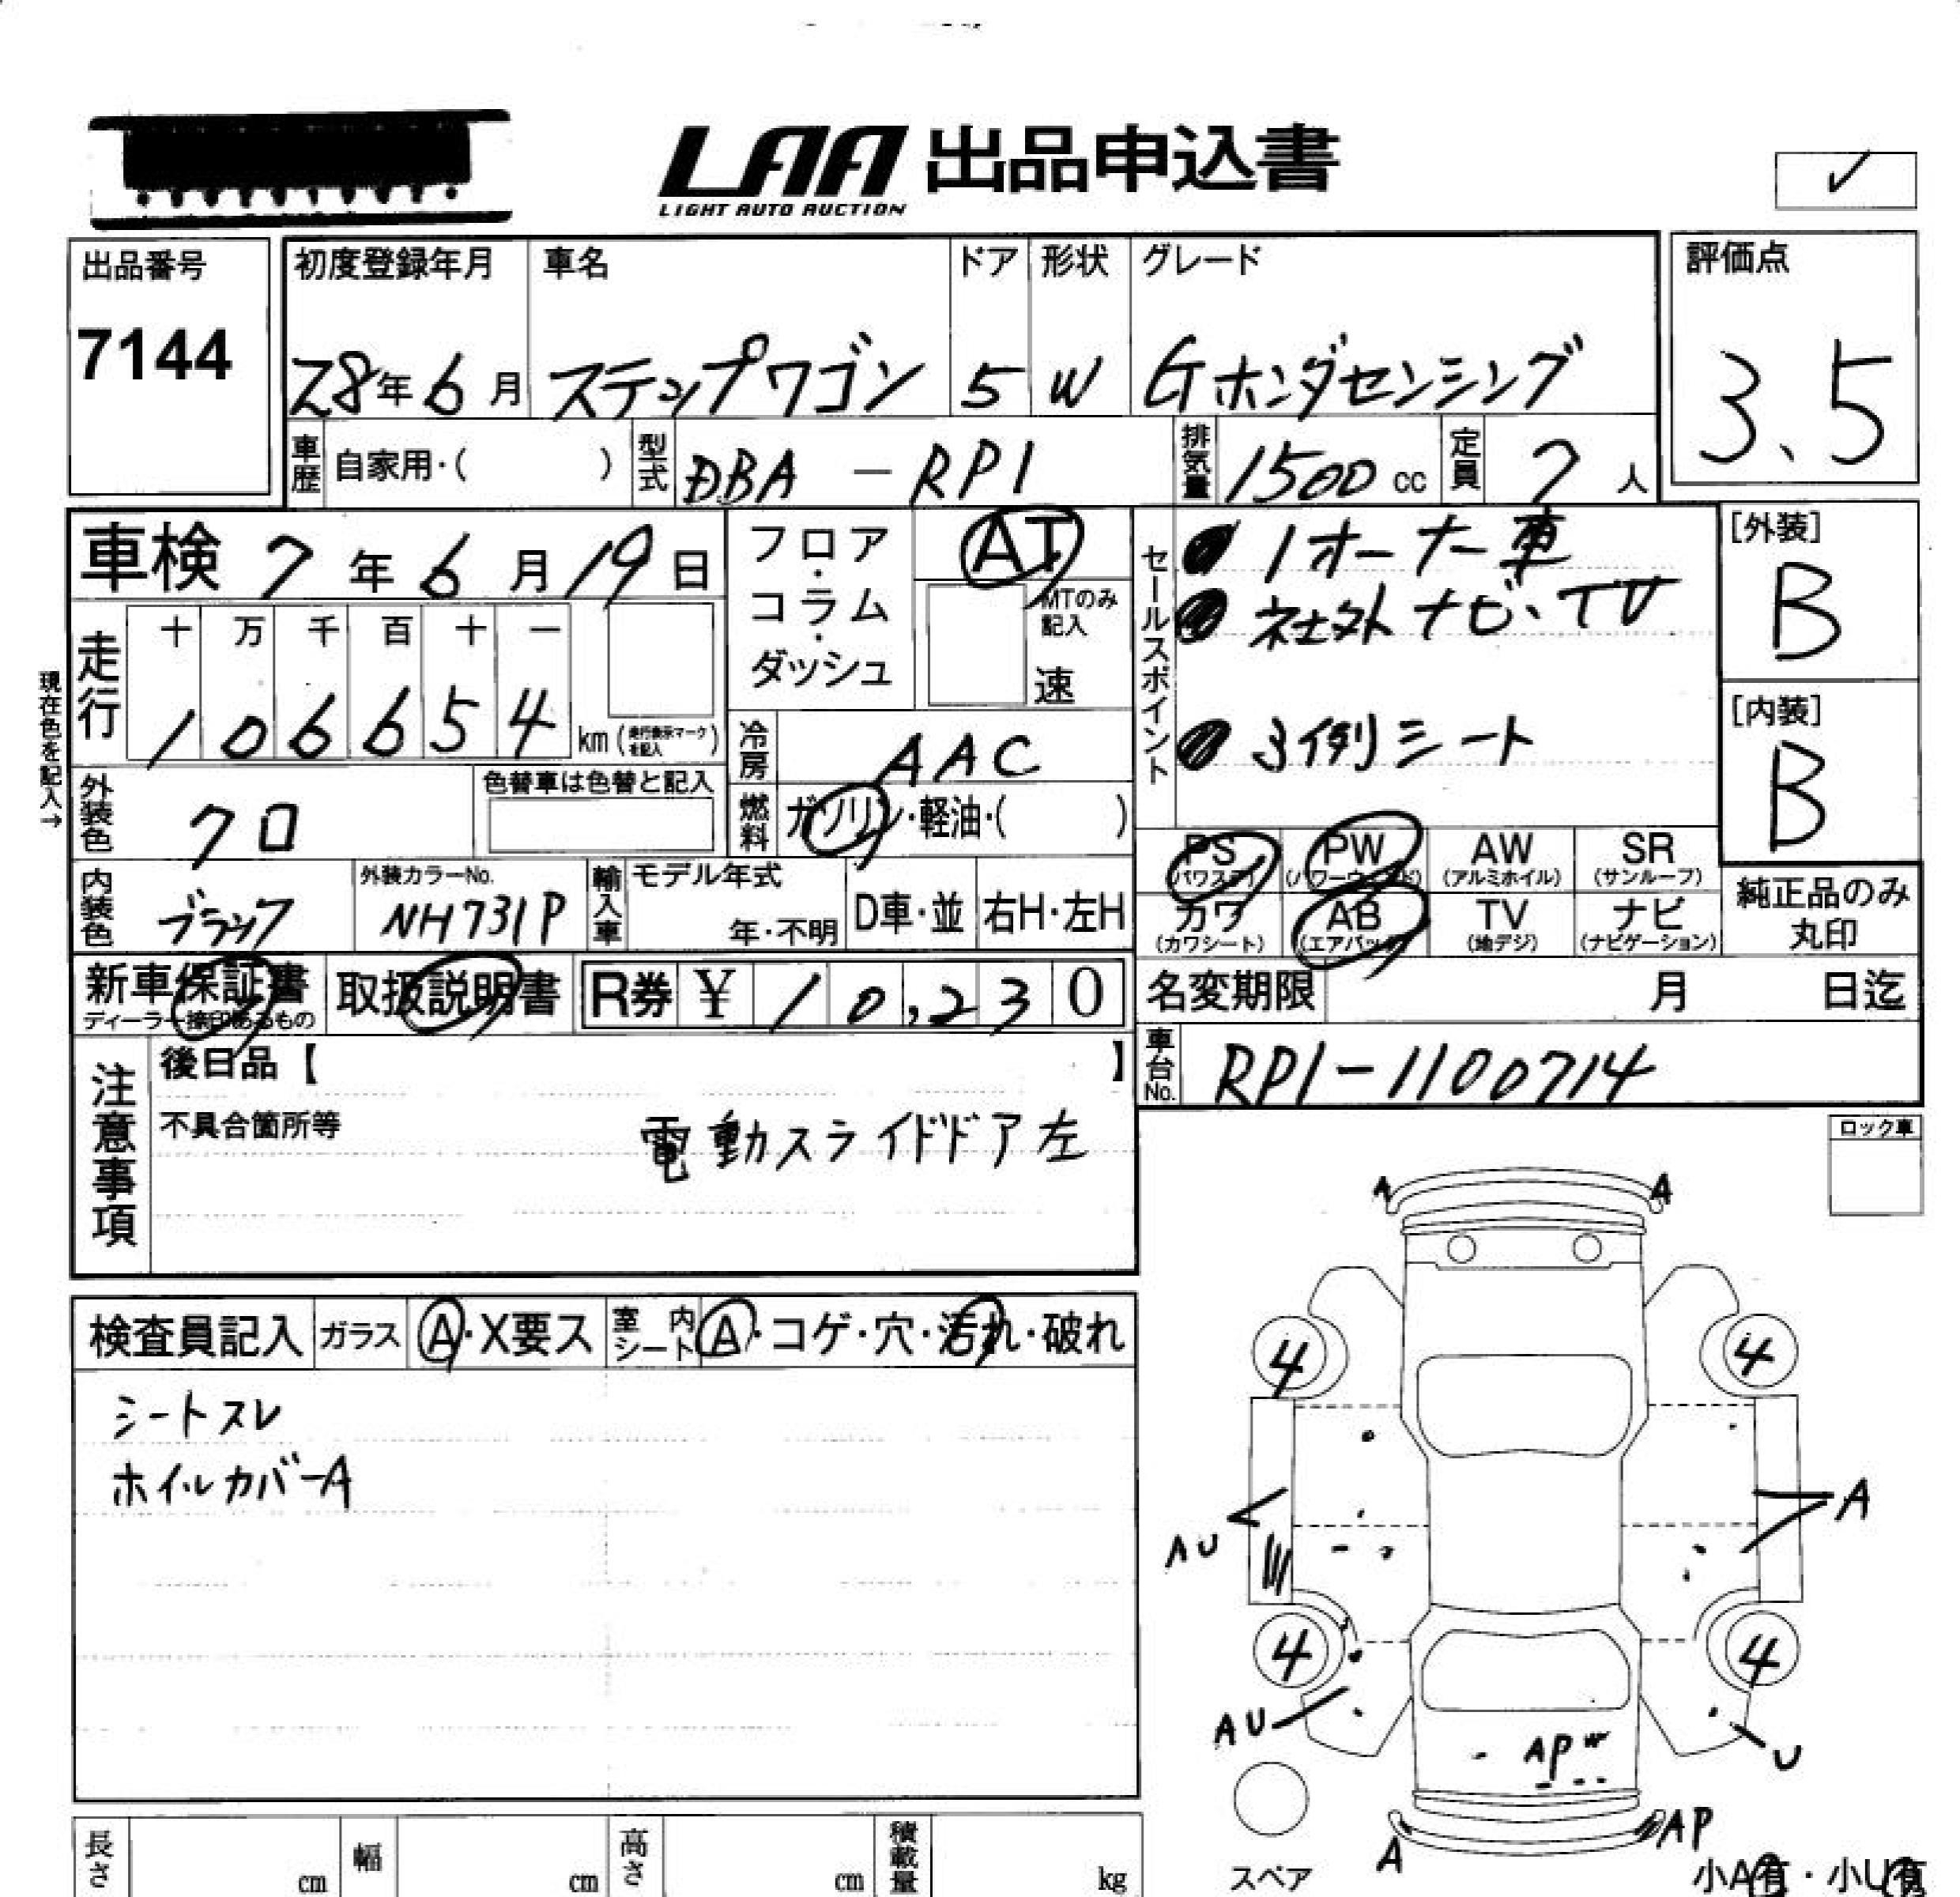 LAA 出品申込書
LIGHT AUTO AUCTION
✓
出品番号
7144
初度登録年月 車名 ドア 形状 グレード
28年6月 ステップワゴン 5 W Gホンダセンシング
評価点
3.5
車歴 自家用・( ) 型式 DBA-RP1 排気量 1500cc 定員 7人
車検 7年6月19日
フロア・コラム・ダッシュ
AT
MTのみ記入
速
走行
十 万 千 百 十 一
1 0 6 6 5 4 km(走行表示マークを記入)
現在色を記入→
冷房 AAC
外装色 クロ
色替車は色替と記入
燃料 ガソリン・軽油・( )
内装色 ブラック
外装カラーNo.
NH731P
輸入車 モデル年式
年・不明
D車・並 右H・左H
セールスポイント
● 1オーナー車
● 社外ナビ・TV
● 3例シート
[外装]
B
[内装]
B
PS (パワステ) PW (パワーウィンド) AW (アルミホイル) SR (サンルーフ)
カワ (カワシート) AB (エアバック) TV (地デジ) ナビ (ナビゲーション)
純正品のみ
丸印
新車保証書
ディーラー捺印あるもの
取扱説明書 R券 ¥ 10,230
名変期限 月 日迄
車台No. RP1-1100714
注意事項
後日品【 】
不具合箇所等
電動スライドドア左
ロック車
検査員記入 ガラス A・X要ス 室内シート A・コゲ・穴・汚れ・破れ
シートスレ
ホイルカバーA
A A
4 4
AU A
4 4
AU U
APW
A AP
スペア
小A有・小U有
長さ cm 幅 cm 高さ cm 積載量 kg